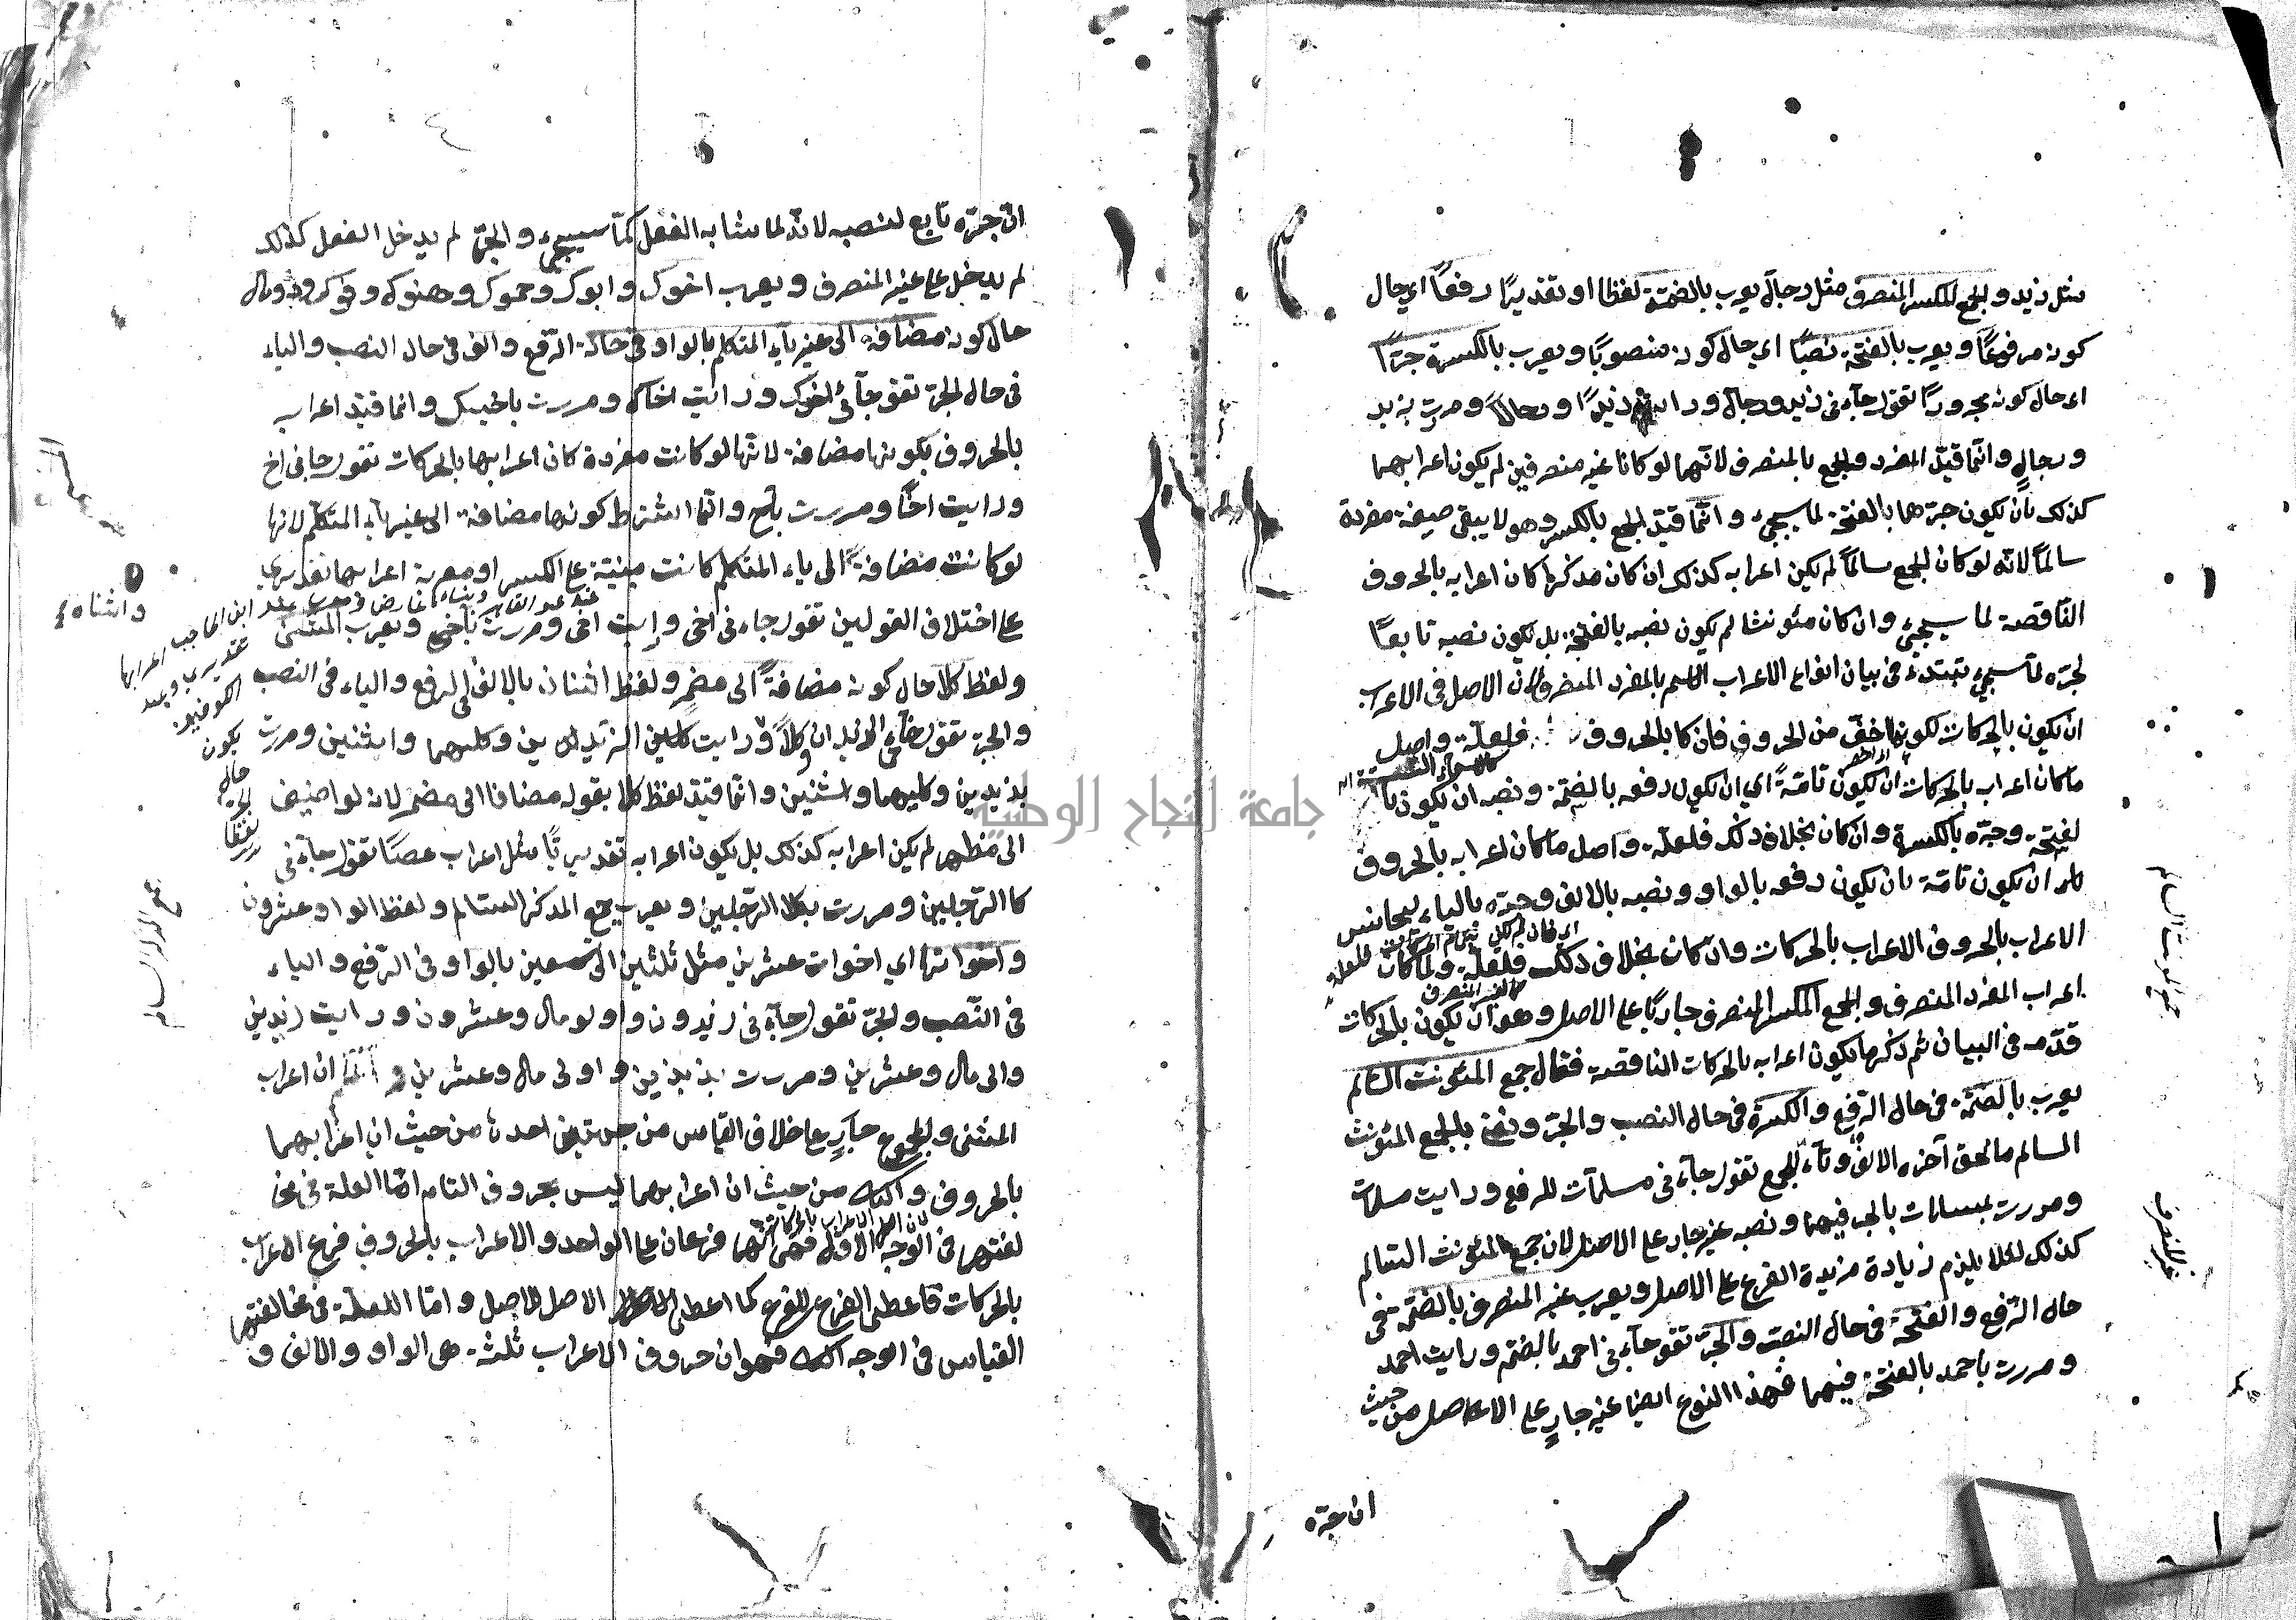 مثل زيد والجمع المكسر المنصرف مثل رجال يعرب بالضمة لفظا او تقديرًا رفعًا اي حال
كونه مرفوعًا ويعرب بالفتحة نصبًا اي حال كونه منصوبًا ويعرب بالكسرة جرًّا
اى حال كونه مجرورًا تقول جاءنى زيد ورجال ورايت زيدًا ورجالاً ومررت بزيد
ورجالٍ وانّما قيّد المفرد والجمع بالمنصرف لانّهما لو كانا غير منصرفين لم يكون اعرابهما
كذلك بان يكون جرّهما بالفتحة لما سيجيء وانّما قيّد الجمع بالمكسر وهو لا يبقى صيغة مفرده
سالمًا لانّه لو كان الجمع سالمًا لم يكن اعرابه كذلك ان كان مذكرا كان اعرابه بالحروف
النّاقصة لما سيجيء وان كان مئونثا لم يكون نصبه بالفتحة بل يكون نصبه تابعًا
لجرّه لما سيجيء تبتدء فى بيان انواع الاعراب الاسم بالمفرد المنصرف لان الاصل فى الاعراب
ان يكون بالحركات لكونها اخفّ من الحروف فان كا بالحروف فلعلّة واصل
ما كان اعرابه بالحركات ان يكون تامّةً اي ان يكون رفعه بالضمّة ونصبه ان يكون با
لفتحة وجرّه بالكسرة وان كان بخلاف ذلك فلعلّة واصل ما كان اعرابه بالحروف
ان يكون تامّة بان يكون رفعه بالواو ونصبه بالالف وجرّه بالياء ليجانس
الاعراب بالحروف الاعراب بالحركات وان كان بخلاف ذلك فلعلّة ولما كان
اعراب المفرد المنصرف والجمع المكسر المنصرف جاريًا على الاصل وهو ان يكون بالحركات
قدّمه فى البيان ثم ذكر ما يكون اعرابه بالحركات الناقصة فقال جمع المئونث السالم
يعرب بالضمّة فى حال الرّفع والكسرة فى حال النصب والجرّ ونعنى بالجمع المئونث
السالم ما لحق آخره الالف وتاء للجمع تقول جاءنى مسلمات للرفع ورايت مسلمات
ومررت بمسلمات بالجر فيهما ونصبه غير جار على الاصل لان جمع المئونث السالم
كذلك لئلا يلزم زيادة مزيدة الفرع على الاصل ويعرب غير المنصرف بالضمّة فى
حال الرّفع والفتحة فى حال النصب والجرّ تقو جاءنى احمد بالضم ورايت احمد
ومررت باحمد بالفتحة فيهما فهذا النوع ايضا غير جارٍ على الاصل من حيث
ان جرّه
جمع المؤنث السالم
غير المنصرف
انّ جرّه تابع لنصبه لانّه لما شابه الفعل كما سيجيء والجرّ لم يدخل الفعل كذلك
لم يدخل على غير المنصرف ويعرب اخوك وابوك وحموك وهنوك وفوك وذو مال
حال كونه مضافة الى غير ياء المتكلم بالواو فى حالة الرّفع والالف فى حال النصب والياء
فى حال الجرّ تقو جاءنى اخوك ورايت اخاك ومررت باخيك وانما قيّد اعراب
بالحروف بكونها مضافة لانّها لو كانت مفردة كان اعرابها بالحركات تقول جاءنى اخ
ورايت اخًا ومررت باخ وانّما اشترط كونها مضافة الى غير ياء المتكلم لانها
لو كانت مضافةً الى ياء المتكلم كانت مبنيّة على الكسر او معربة اعرابها تقديريا
على اختلاف القولين تقول جاءنى اخى ورايت اخى ومررت باخى ويعرب المثنّى
ولفظ كلا حال كونه مضافةً الى مضمر ولفظ اثنان بالالف فى الرفع والياء فى النصب
والجرّ تقول جاءنى الزيدان وكلا ورايت الزيدين وكليهما واثنين ومررت
بزيدين وكليهما واثنين وانّما قيّد لفظ كلا بقوله مضافا الى مضمر لانه لو اضيف
الى مظهر لم يكن اعرابه كذلك بل يكون اعرابه تقديريًا مثل اعراب عصًا تقول جاءنى
كلا الرّجلين ومررت بكلا الرّجلين ويعرب جمع المذكر السالم ولفظ الواو عشرون
واخواتها اي اخوات عشرين مثل ثلثين الى تسعين بالواو فى الرّفع والياء
فى النّصب والجرّ تقول جاءنى زيدون واولو مال وعشرون ورايت زيدين
والى مال وعشرين ومررت بزيدين واولى مال وعشرين ان اعراب
المثنى والمجموع جارٍ على خلاف القياس من جهتين احدها من حيث ان اعرابهما
بالحروف من حيث ان اعرابهما ليس بحروف التامه امّا العلة فى مخا
لفتهما فى الوجه الاوّل فهى انّهما فرعان على الواحد والاعراب بالحروف فرع الاعراب
بالحركات فاعطى الفرع للفرع كما اعطى الاصل للاصل وامّا العلّة فى مخالفتهما
القياس فى الوجه فهو ان حروف الاعراب ثلثة هى الواو والالف و
جمع المذكر السالم
جامعة النجاح الوطنية